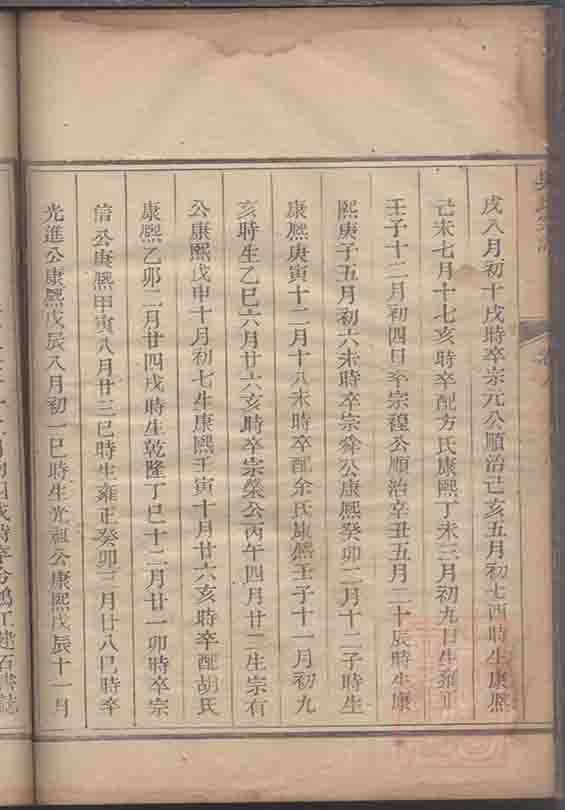 戌八月初十戌時卒宗元公順治己亥五月初七酉時生康熙
己未七月十七亥時卒配方氏康熙丁未三月初九日生雍正
壬子十二月初四日卒宗稷公順治辛丑五月二十辰時生康
熙庚子五月初六未時卒宗舜公康熙癸卯二月十二子時生
康熙庚寅十二月十八未時卒配余氏康熙壬子十一月初九
亥時生乙巳六月廿六亥時卒宗榮公丙午四月廿二生宗有
公康熙戊申十月初七生康熙壬寅十月廿六亥時卒配胡氏
康熙乙卯二月廿四戌時生乾隆丁巳十二月廿一卯時卒宗
信公康熙甲寅八月廿三巳時生雍正癸卯三月廿八巳時卒
光進公康熙戊辰八月初一巳時生光祖公康熙戊辰十一月